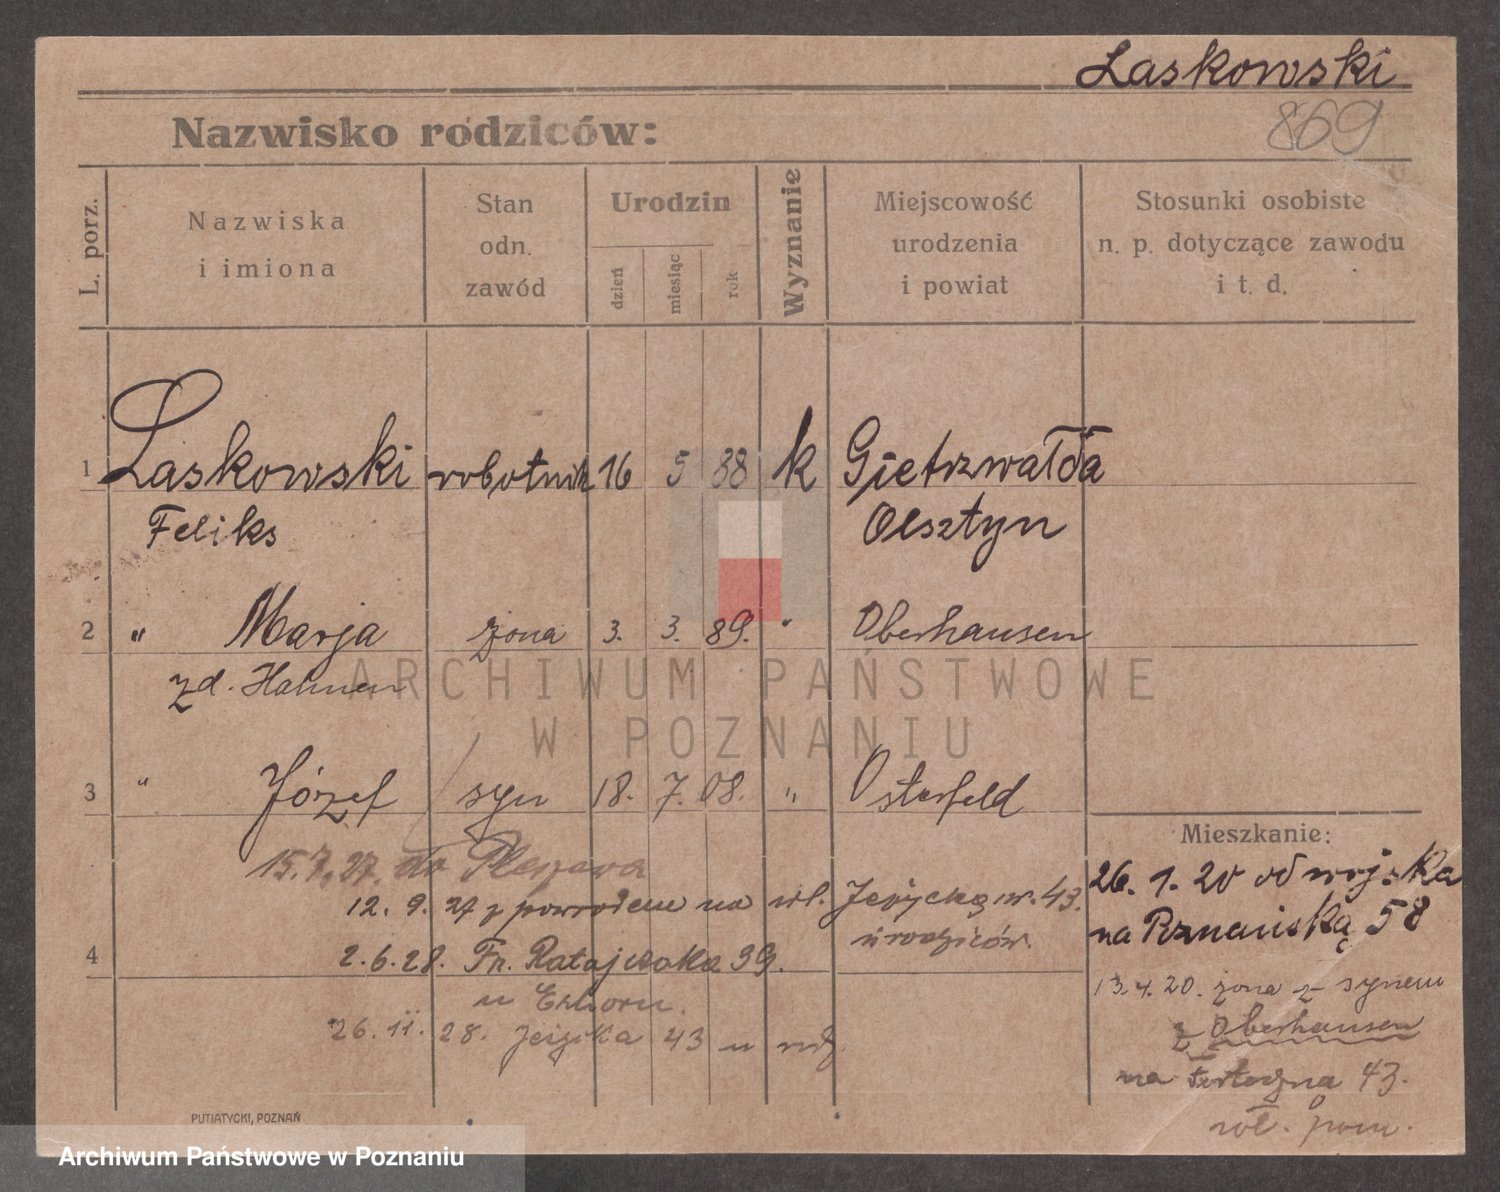 Laskowski
869
Nazwisko rodziców:
L. porz.
Nazwiska
i imiona
Stan
odn.
zawód
Urodzin
dzień
miesiąc
rok
Wyznanie
Miejscowość
urodzenia
i powiat
Stosunki osobiste
n. p. dotyczące zawodu
i t. d.
1 Laskowski robotnik 16 5 88 k Gietrzwałda
Feliks Olsztyn
2 " Marja żona 3. 3. 89. " Oberhausen
zd. Hahnen
ARCHIWUM PAŃSTWOWE
W POZNANIU
3 " Józef syn 18. 7. 08. " Osterfeld
15.7.27. do Pleszewa
12. 9. 27 z powrotem na wł. Jeżycką nr. 43.
u rodziców.
4 2.6.28. Fr. Ratajczaka 39.
26. 11. 28. Jeżycka 43 u rodz.
Mieszkanie:
26. 1. 20 od wojska
na Poznańską 58
13.4.20. żona z synem
z Oberhausen
na 43.
PUTIATYCKI, POZNAŃ
Archiwum Państwowe w Poznaniu